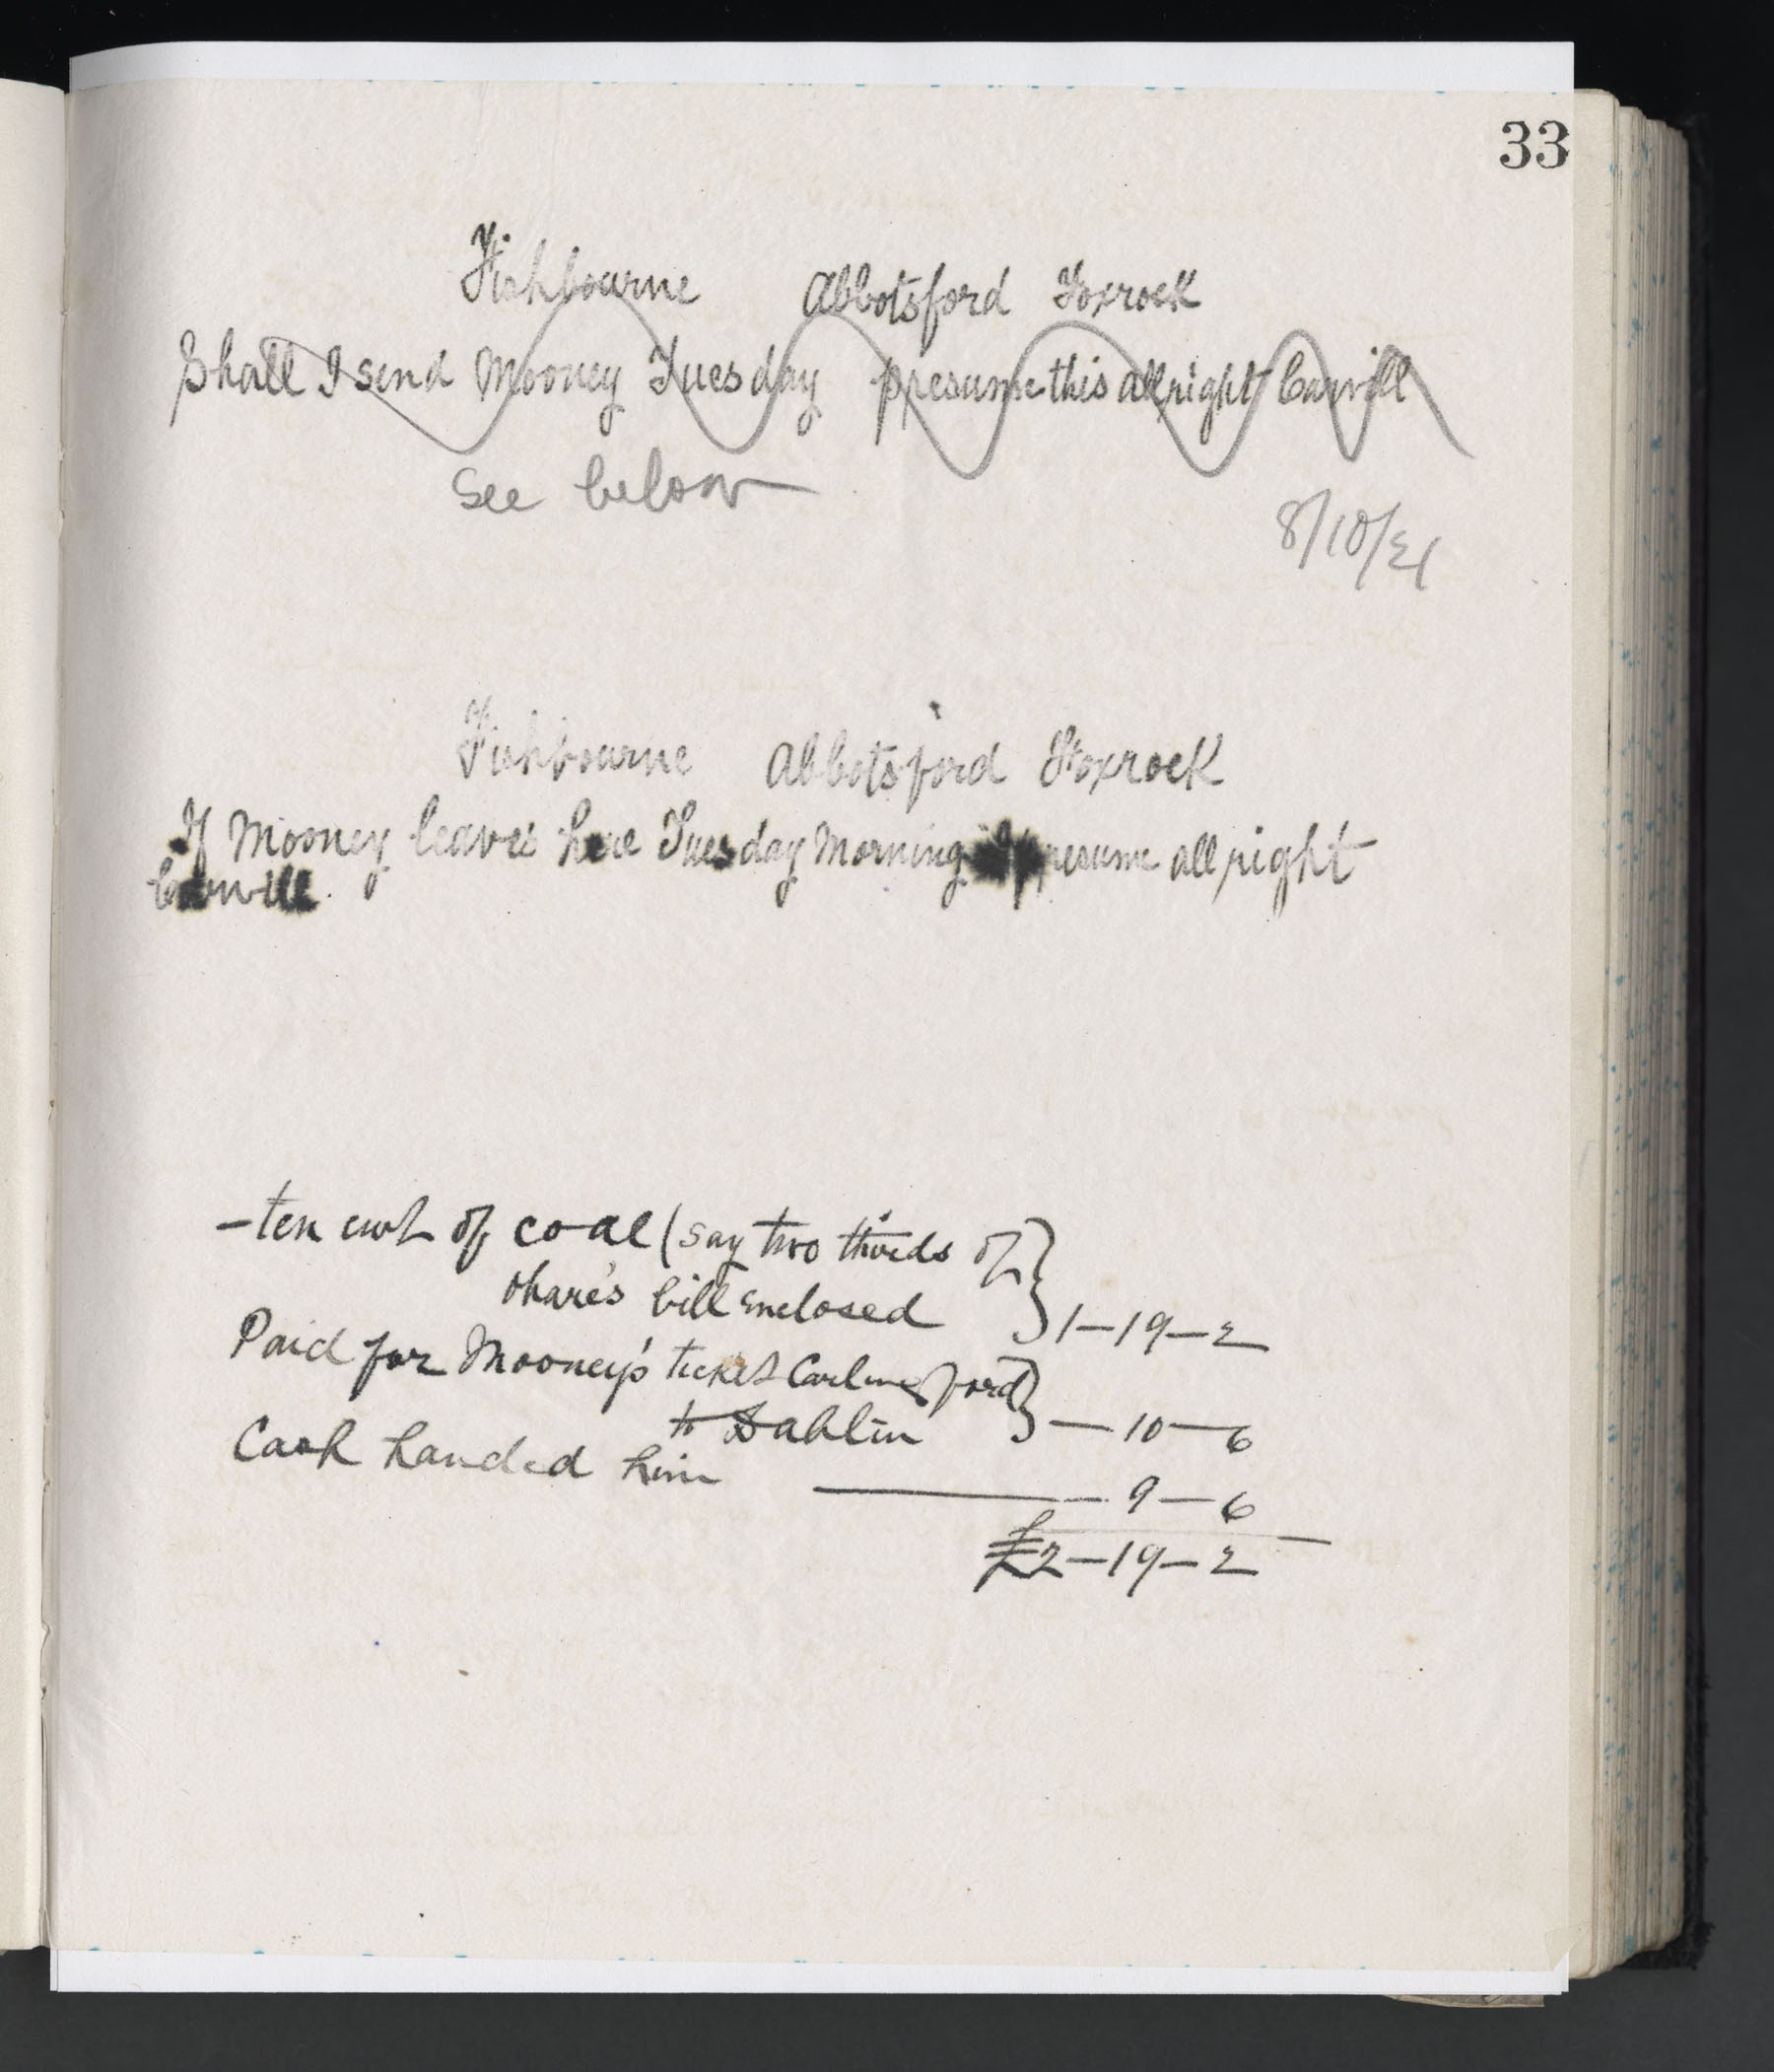 33
Fishbourne Abbotsford Foxrock
Shall I send Mooney Tuesday presume this allright Carvill
See below
8/10/21
Fishbourne Abbotsford Foxrock
If Mooney leaves here Tuesday Morning presume all right
Carvill
- ten cwt of coal (say two thirds of
Ohare's bill enclosed } 1-19-2
Paid for Mooney's ticket Carlingford
to Dublin } - 10 - 6
Cash handed him - 9 - 6
£2-19-2